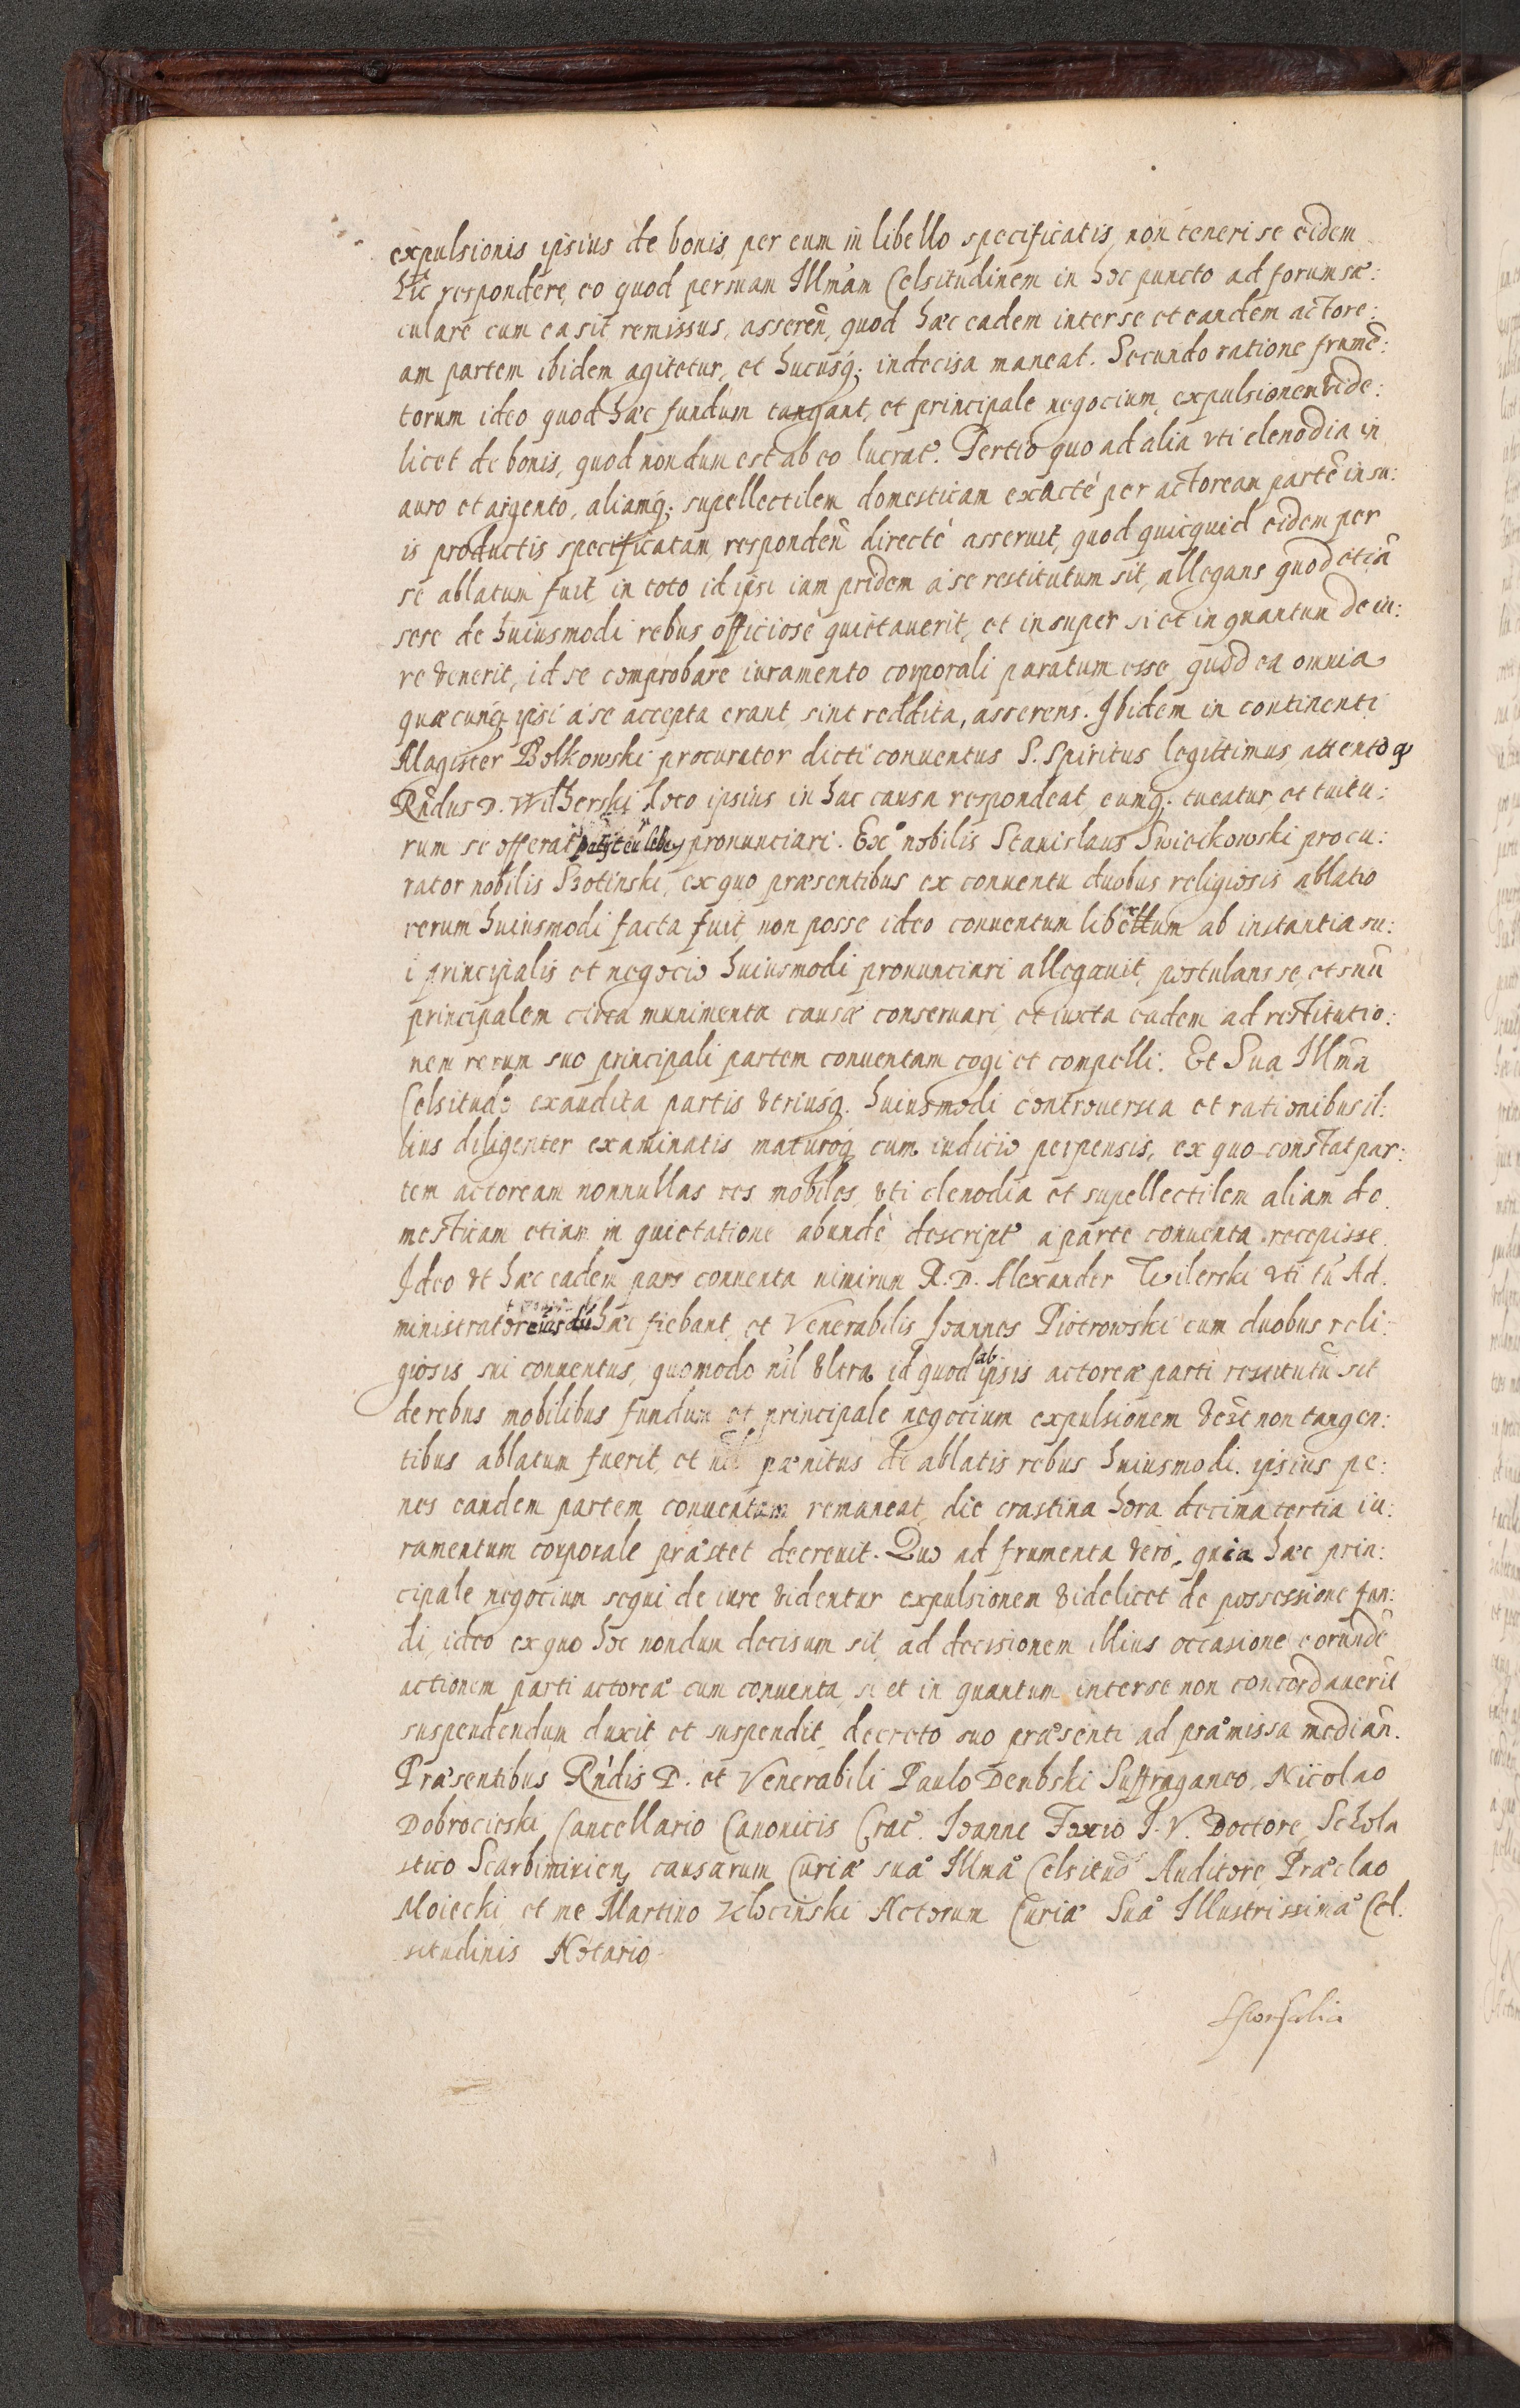 expulsionis ipsius de bonis, per eum in libello specificatis, non teneri se eidem
hic respondere, eo quod per suam Illmãm Celsitudinem in hoc puncto ad forum sæ:
culare cum ea sit remissus, asserẽn, quod hæc eadem inter se et eandem actore:
am partem ibidem agitetur, et hucusq; indecisa maneat. Secundo ratione frumẽ:
torum ideo quod hæc fundum tangant, et principale negocium, expulsionem vide:
licet de bonis, quod nondum est ab eo lucrat̃. Tertio quo ad alia vti clenodia in
auro et argento, aliamq; supellectilem domesticam exactè per actoream partẽ in su:
is productis specificatam, respondeñ directè asseruit, quod quicquid eidem per
se ablatum fuit, in toto id ipsi iam pridem à se restitutum sit, allegans quod etiã
sese de huiusmodi rebus officiosè quietauerit, et insuper si et in quantum de iu:
re venerit, id se comprobare iuramento corporali paratum esse, quod ea omnia
quæcunq; ipsi à se accepta erant, sint reddita, asserens. Ibidem in continenti
Magister Bolkowski procurator dicti conuentus S. Spiritus legittimus, attento q
Rñdus D. Wilherski loco ipsius in hac causa respondeat, eumq; tueatur, et tuitu:
rum se offerat, pronunciari. Ex̊ nobilis Stanislaus Swiećkowski procu:
rator nobilis Szotinski, ex quo præsentibus ex conuentu duobus religiosis ablatio
rerum huiusmodi facta fuit, non posse ideo conuentum ab instantia su:
i principalis et negocio huiusmodi pronunciari allegauit, postulans se, et suũ
principalem circa munimenta causæ conseruari, et iuxta eadem ad restitutio:
nem rerum suo principali partem conuentam cogi et compelli: Et Sua Illmã
Celsitudo exaudita partis vtriusq; huiusmodi controuersia et rationibus il:
lius diligenter examinatis maturoq; cum iudicio perpensis, ex quo constat par:
tem actoream nonnullas res mobiles, vti clenodia et supellectilem aliam do
mesticam etiam in quietatione abundè descript̃ a parte conuenta recepisse
Ideo vt hæc eadem pars conuenta nimirum R. D. Alexander Wilerski vti tũ Ad
ministrator hæc fiebant, et Venerabilis Ioannes Piotrowski cum duobus reli:
giosis sui conuentus, quomodo nil vltra id quod ab ipsis actoreæ parti restitutũ sit
de rebus mobilibus fundum et principale negocium expulsionem non tangen:
tibus ablatum fuerit, et nil pænitus de ablatis rebus huiusmodi ipsius pe:
nes eandem partem conuentam remaneat, die crastina hora decima tertia iu:
ramentum corporale præstet decreuit. Quo ad frumenta verò, quia hæc prin:
cipale negocium sequi de iure videntur expulsionem videlicet de possessione fun:
di, ideo ex quo hoc nondum decisum sit, ad decisionem illius occasione eorundẽ
actionem parti actoreæ cum conuenta, si et in quantum inter se non concordauerit
suspendendum duxit et suspendit, decreto suo præsenti ad præmissa mediañ.
Præsentibus Rñdis D. et Venerabili Paulo Dembski Suffraganeo, Nicolao
Dobrocieski Cancellario Canonicis Crac̃. Ioanne Foxio I. V. Doctore, Schola
stico Scarbimirien, causarum Curiæ suæ Illmæ Celsitud̃ Auditore, Præclao
Moiecki, et me Martino Klocinski Actorum Curiæ Suæ Illustrissimæ Cel.
situdinis Notario
Sponsalia